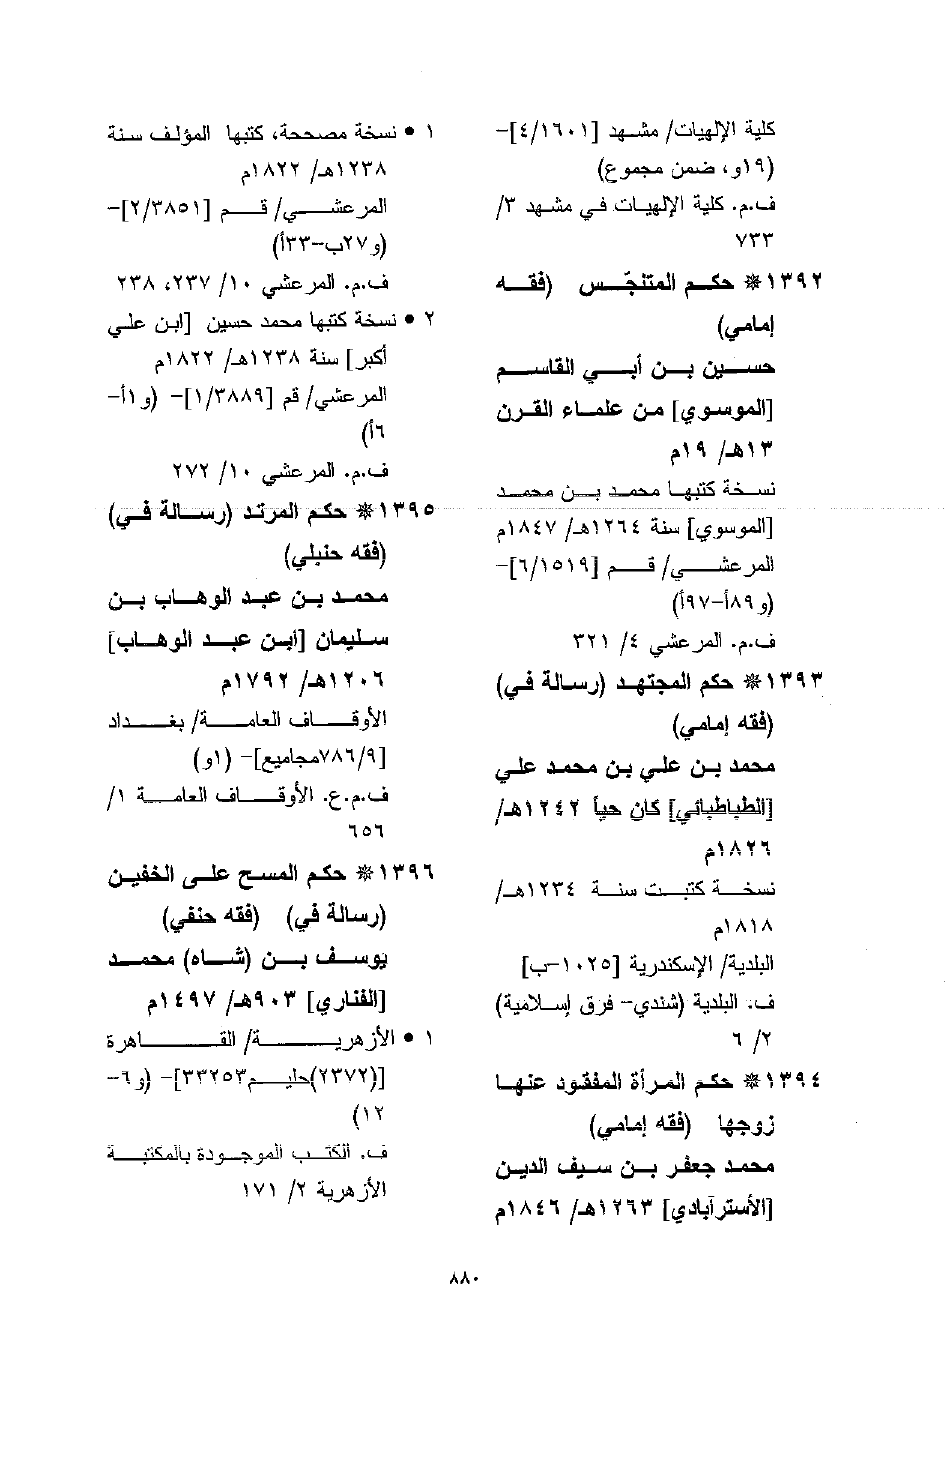 كلية الإلهيات/ مشهد [٤/١٦٠١]-
(١٩و، ضمن مجموع)
ف.م. كلية الإلهيات في مشهد ٣/
٧٣٣
١٣٩٢* حكم المتنجّس (فقه
إمامي)
حسين بن أبي القاسم
[الموسوي] من علماء القرن
١٣هـ/ ١٩م
نسخة كتبها محمد بن محمد
[الموسوي] سنة ١٢٦٤هـ/ ١٨٤٧م
المرعشي/ قم [٦/١٥١٩]-
(و٨٩أ-٩٧أ)
ف.م. المرعشي ٤/ ٣٢١
١٣٩٣* حكم المجتهد (رسالة في)
(فقه إمامي)
محمد بن علي بن محمد علي
[الطباطبائي] كان حياً ١٢٤٢هـ/
١٨٢٦م
نسخة كتبت سنة ١٢٣٤هـ/
١٨١٨م
البلدية/ الإسكندرية [١٠٢٥-ب]
ف. البلدية (شندي- فرق إسلامية)
٢/ ٦
١٣٩٤* حكم المرأة المفقود عنها
زوجها (فقه إمامي)
محمد جعفر بن سيف الدين
[الأسترآبادي] ١٢٦٣هـ/ ١٨٤٦م
١ • نسخة مصححة، كتبها المؤلف سنة
١٢٣٨هـ/ ١٨٢٢م
المرعشي/ قم [٢/٣٨٥١]-
(و٢٧ب-٣٣أ)
ف.م. المرعشي ١٠/ ٢٣٧، ٢٣٨
٢ • نسخة كتبها محمد حسين [ابن علي
أكبر] سنة ١٢٣٨هـ/ ١٨٢٢م
المرعشي/ قم [١/٣٨٨٩]- (و١أ-
٦أ)
ف.م. المرعشي ١٠/ ٢٧٢
١٣٩٥* حكم المرتد (رسالة في)
(فقه حنبلي)
محمد بن عبد الوهاب بن
سليمان [ابن عبد الوهاب]
١٢٠٦هـ/ ١٧٩٢م
الأوقاف العامة/ بغداد
[٧٨٦/٩مجاميع]- (١و)
ف.م.ع. الأوقاف العامة ١/
٦٥٦
١٣٩٦* حكم المسح على الخفين
(رسالة في) (فقه حنفي)
يوسف بن (شاه) محمد
[الفناري] ٩٠٣هـ/ ١٤٩٧م
١ • الأزهرية/ القاهرة
[(٢٣٧٢)حليم٣٣٢٥٣]- (و٦-
١٢)
ف. الكتب الموجودة بالمكتبة
الأزهرية ٢/ ١٧١
٨٨٠